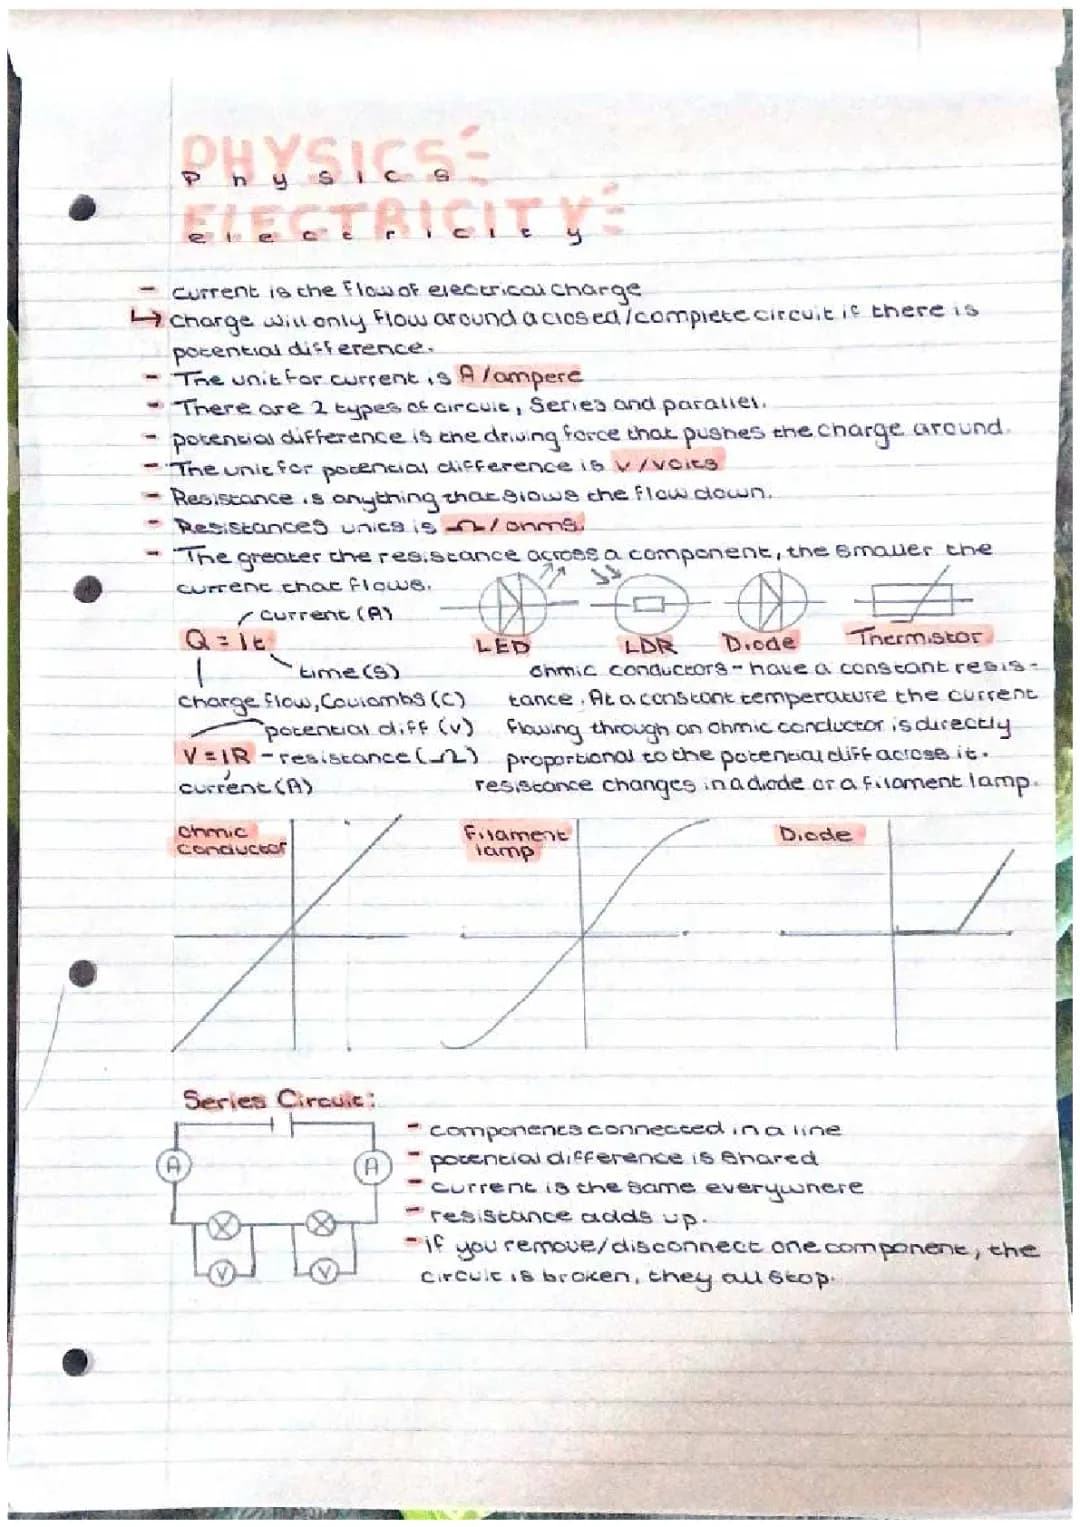 PHYSICS
Physics
ELECTRICITY
electricity
- current is the flow of electrical charge
↳ charge will only flow around a closed/complete circuit if there is
potential difference.
- The unit for current is A/ampere
- There are 2 types of circuit, Series and parallel.
- potential difference is the driving force that pushes the charge around.
- The unit for potential difference is V/volts
- Resistance is anything that slows the flow down.
- Resistances units is Ω/ohms.
- The greater the resistance across a component, the smaller the
current that flows.
current (A)
Q = It
time (s)
charge flow, Coulombs (C)
potential diff (v)
V = IR - resistance (Ω)
current (A)
LED LDR Diode Thermistor
ohmic conductors - have a constant resis-
tance. At a constant temperature the current
flowing through an ohmic conductor is directly
proportional to the potential diff across it.
resistance changes in a diode or a filament lamp.
Ohmic
conductor
Filament
lamp
Diode
Series Circuit:
A A
V V
- components connected in a line
- potential difference is shared
- current is the same everywhere
- resistance adds up.
- if you remove/disconnect one component, the
circuit is broken, they all stop.